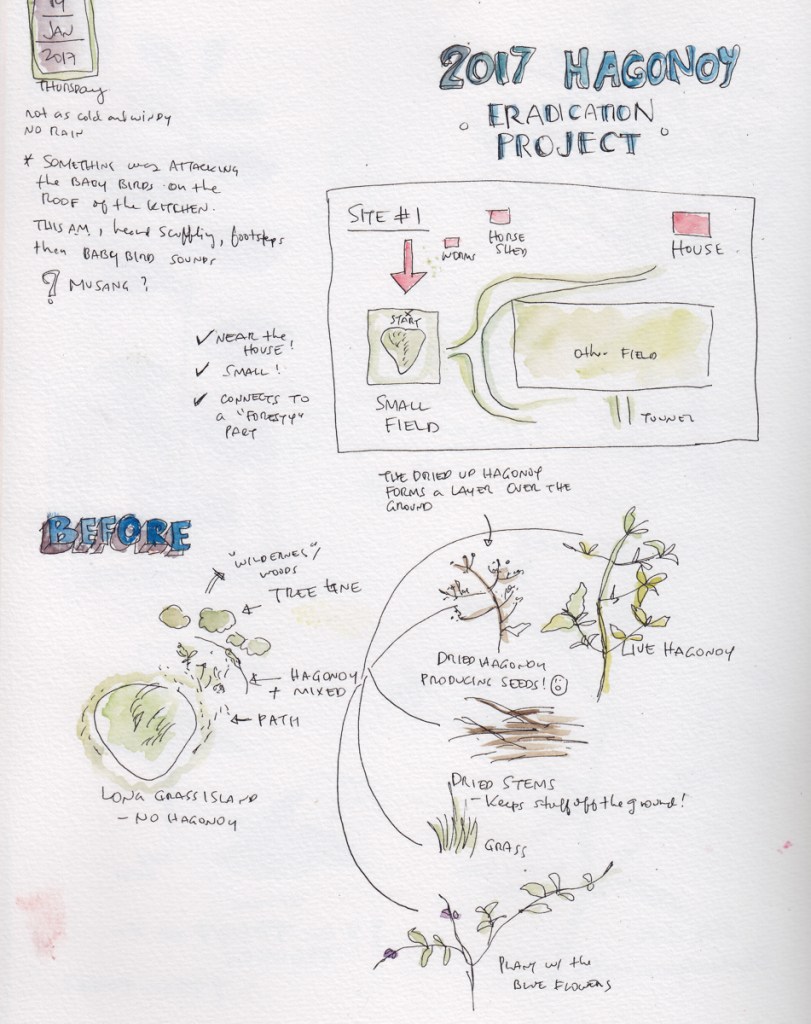 19
JAN
2017
THURSDAY
not as cold and windy
NO RAIN
* SOMETHING was ATTACKING
the BABY BIRDS on the
ROOF of the KITCHEN.
THIS AM, heard scuffling, footsteps
then BABY BIRD SOUNDS
? MUSANG ?
2017 HAGONOY
ERADICATION
PROJECT
SITE #1
WORMS
HORSE
SHED
HOUSE
START
X
OTHER FIELD
SMALL
FIELD
TUNNEL
✓ NEAR the
HOUSE!
✓ SMALL!
✓ CONNECTS TO
a "FORESTY"
PART
THE DRIED UP HAGONOY
FORMS a LAYER OVER THE
GROUND
BEFORE
"WILDERNES"/
WOODS
TREE LINE
HAGONOY
+ MIXED
PATH
LONG GRASS ISLAND
- NO HAGONOY
DRIED HAGONOY
PRODUCING SEEDS!
LIVE HAGONOY
DRIED STEMS
- Keeps stuff off the ground!
GRASS
PLANT w/ the
BLUE FLOWERS